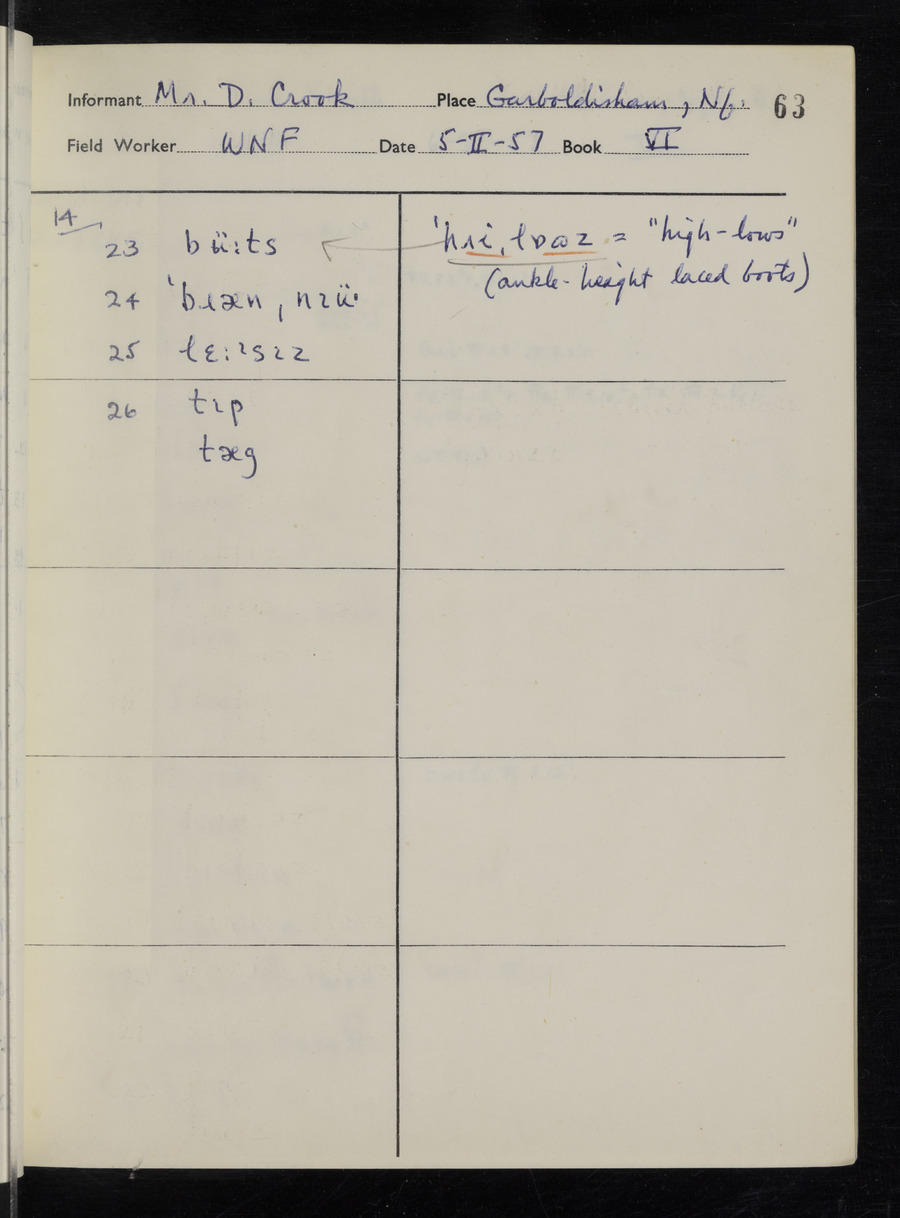 Informant Mr. D. Crook Place Garboldisham, Nf. 63
Field Worker WNF Date 5-II-57 Book VI
14
23 bü:ts ˈhɪi̇ˌlɒɷz = "high-lows"
(ankle-height laced boots)
24 ˈbɹæn ˌnɪü·
25 lɛ:ɪsɪz
26 tɪp
tæg